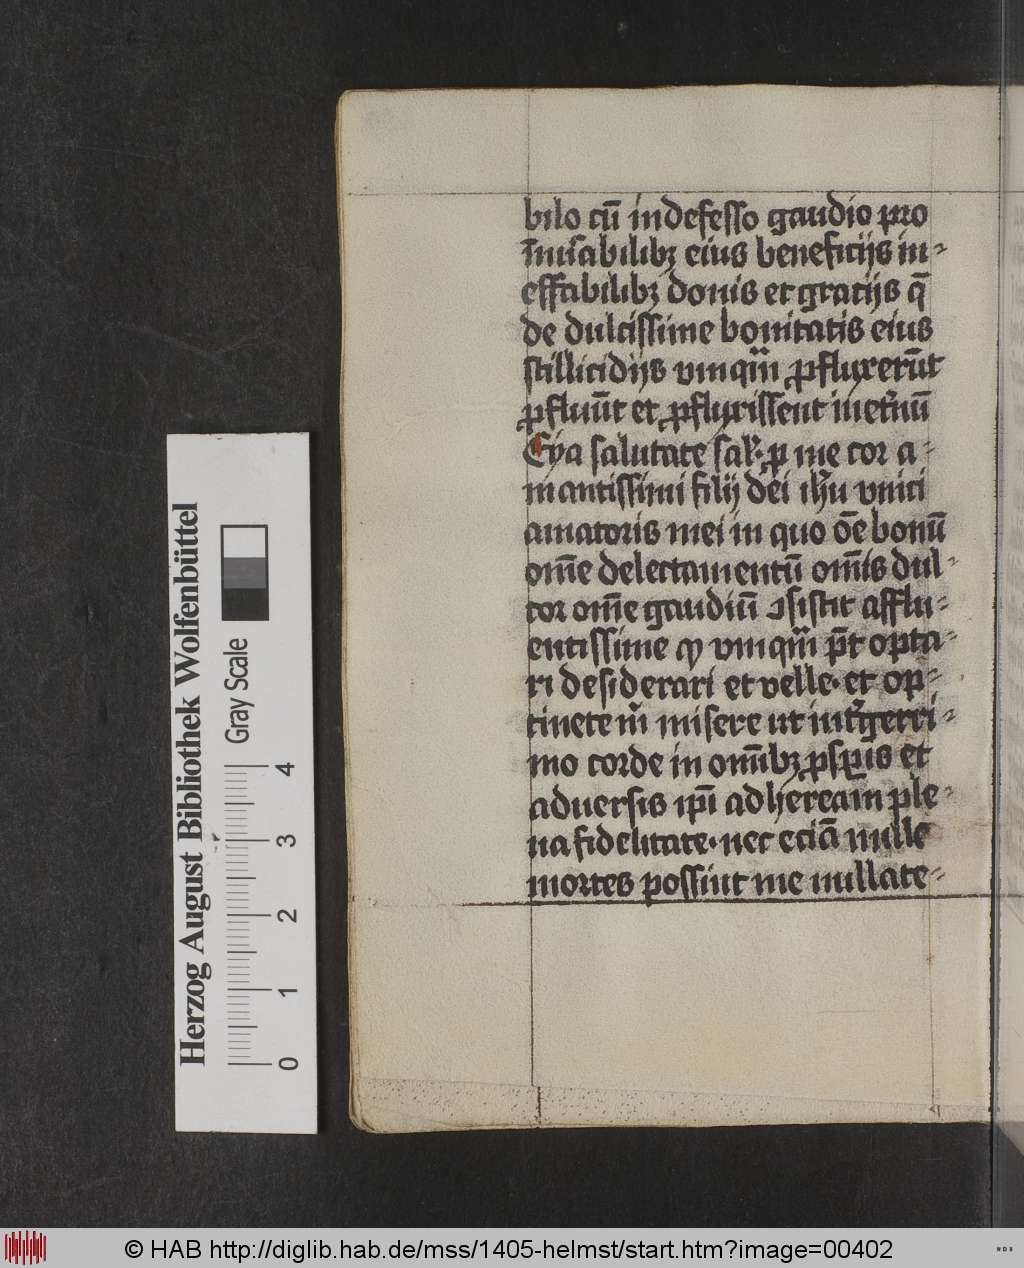 bilo cū indefesso gaudio pro
īmiꝛabilibꝫ eius beneficijs in-
effabilibꝫ donis et gracijs q̄
de dulcissime bonitatis eius
stillicidijs vnquā ꝓfluxerūt
ꝓfluūt et ꝓfluxissent inet̉nū
Eya salutate sal᷑ ꝑ me cor a-
mantissimi filij dei ih̓u vnici
amatoris mei in quo ōe bonū
om̄e delectamentū om̄is dul-
cor om̄e gaudiū ꝯsistit afflu-
entissime vnquā p̄t opta-
ri desiderari et velle· et op-
tinete m̄ misere ut int̉gerri-
mo corde in omībꝫ ꝓsꝑis et
aduersis ip̄i adheream ple-
na fidelitate· nec eciā mille
mortes possint me nullate-
Herzog August Bibliothek Wolfenbüttel
Gray Scale
0 1 2 3 4
© HAB http://diglib.hab.de/mss/1405-helmst/start.htm?image=00402